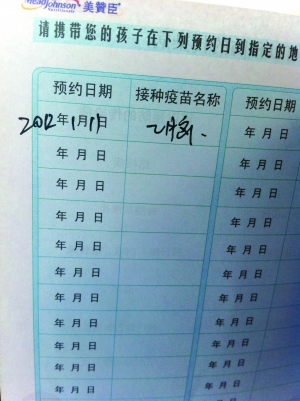 MeadJohnson 美赞臣
请携带您的孩子在下列预约日到指定的地
预约日期 接种疫苗名称 预约日期
2012年1月1日 年 月 日
年 月 日 年 月 日
年 月 日 年 月 日
年 月 日 年 月 日
年 月 日 年 月 日
年 月 日 年 月 日
年 月 日 年 月 日
年 月 日 年 月 日
年 月 日 年 月 日
年 月 日 年 月 日
年 月 日 年 月 日